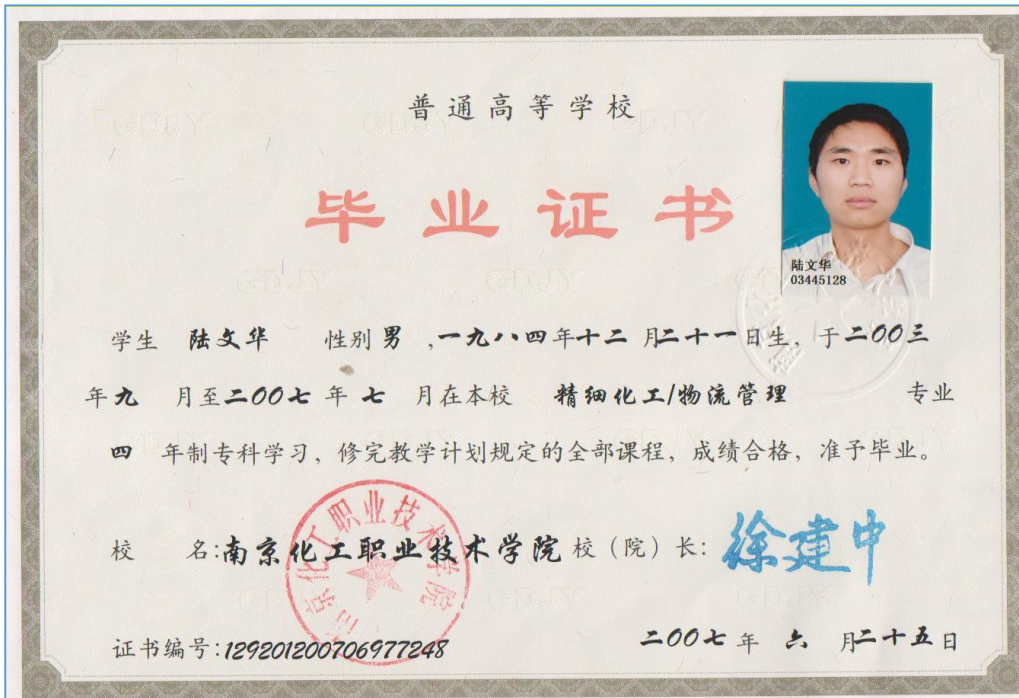 普通高等学校
毕业证书
陆文华
03445128
学生 陆文华 性别 男 ,一九八四年十二月二十一日生，于二00三
年九 月至二00七年七 月在本校 精细化工/物流管理 专业
四 年制专科学习，修完教学计划规定的全部课程，成绩合格，准予毕业。
南京化工职业技术学院
校 名:南京化工职业技术学院 校（院）长: 徐建中
证书编号:129201200706977248 二00七年 六 月二十五日